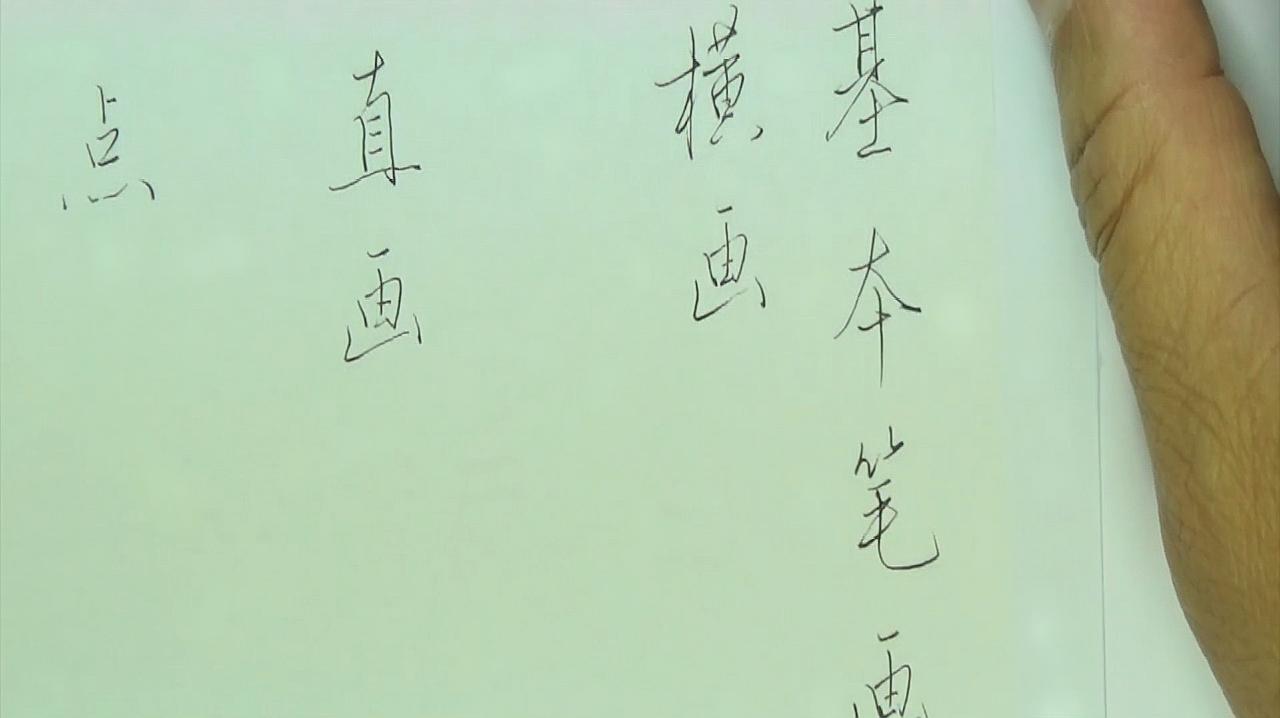 基本笔画
横画
直画
点